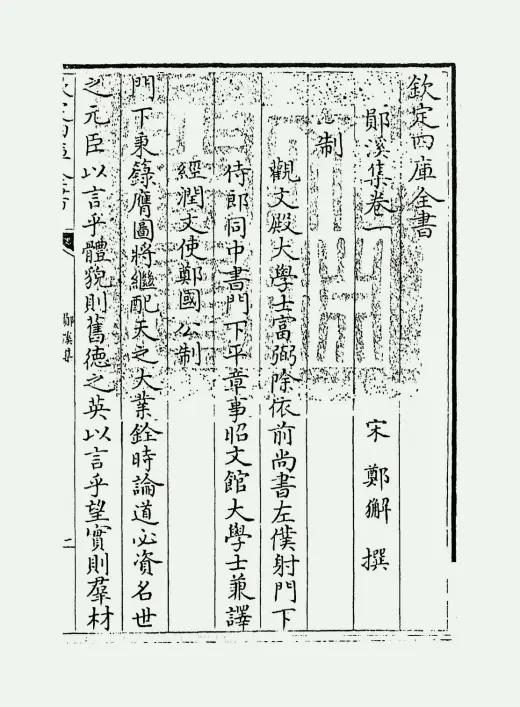 欽定四庫全書
鄖溪集卷一
宋 鄭獬 撰
制
觀文殿大學士富弼除依前尚書左僕射門下
侍郎同中書門下平章事昭文館大學士兼譯
經潤文使鄭國公制
門下秉籙膺圖將繼配天之大業銓時論道必資名世
之元臣以言乎體貌則舊德之英以言乎望實則羣材
欽定四庫全書
鄖溪集
二